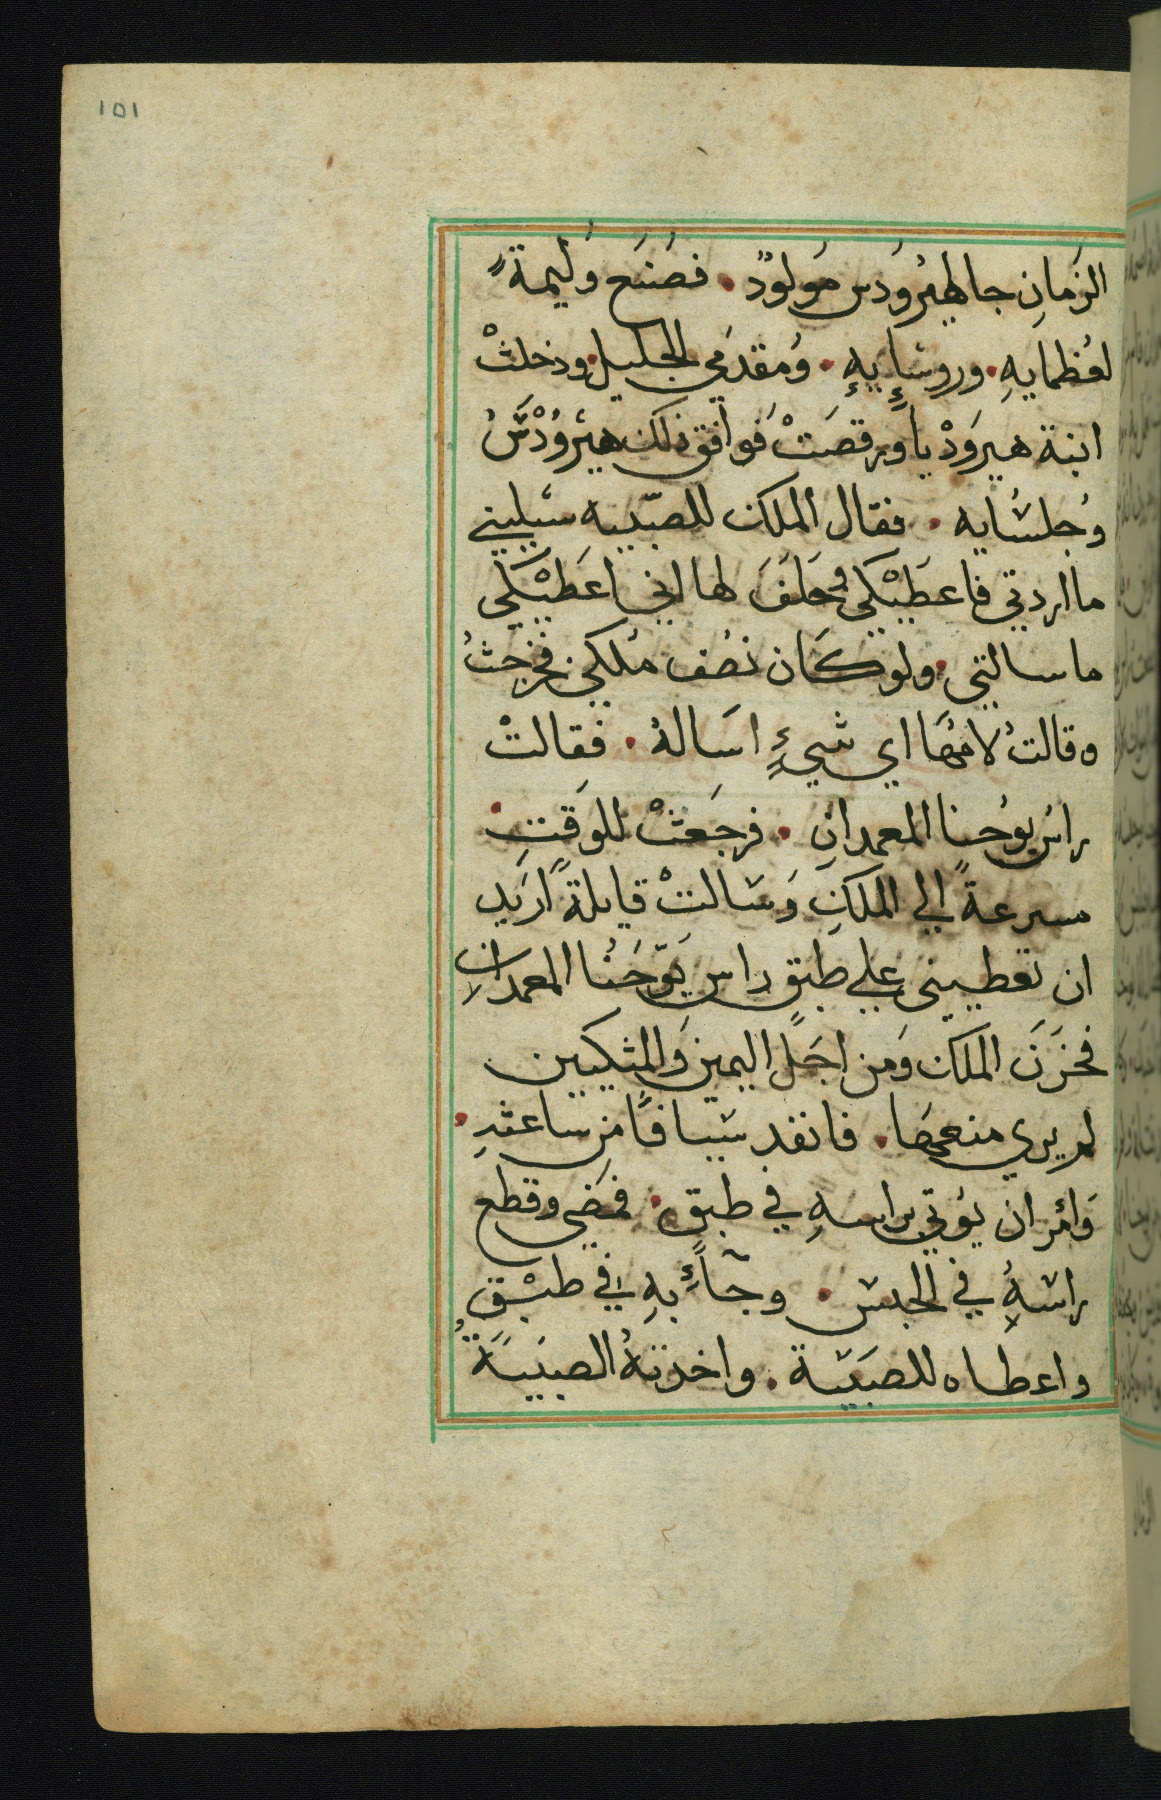 ١٥١
الزَمانِ جا لهيرُودُس مَولُودٌ. فصُنَع وَليمة
لعُظمايهِ. وروسَايهِ. وُمقدمي الجليل. ودخلتْ
ابنة هيرَوَدْيا ورقصَتْ فَوافق ذلك هيرُوُدْسَ
وُجلسُايه. فقال الملك للصبّيه سَيليني
ما اردتي فاعَطَيْكي وحَلفَ لها اني اعَطَيْكي
ما سالتني. ولو كَان نصُف مُلكي. فخرجتُ
وقالتُ لامُهَا اي شيءٍ اسَالهُ. فقالتْ
راسُ يوُحنا المعمدانِ. فرجَعتْ للوَقتِ.
مسرعةً الي الملكِ وَسَالتْ قايلةً اُرَيد
ان تعطيني علي طبقٍ راس يَوّحَنُا المعمدانِ
فحَزنَ الملك وَمن اجَل اليمين وَالمتكيين
لم يري منعهَا. فانفد سَيافًا مَن ساعتهِ.
وَامُر ان يُوتي براسهِ في طبقٍ. فمَضي وقطع
راسَهُ في الحبس. وجَآءَ بهِ في طبْق
واعطاه للصبَيَة. واخدتهُ الصبَيَةُ